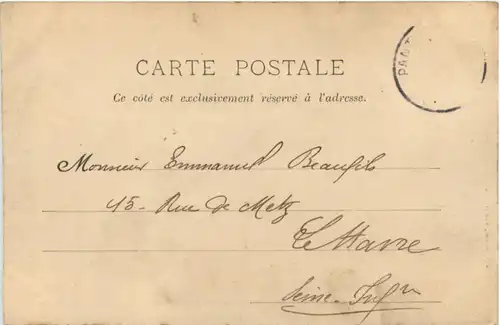 CARTE POSTALE
Ce côté est exclusivement réservé à l'adresse.
Monsieur Emmanuel Beaufils
15 - Rue de Metz
Le Havre
Seine-Infre